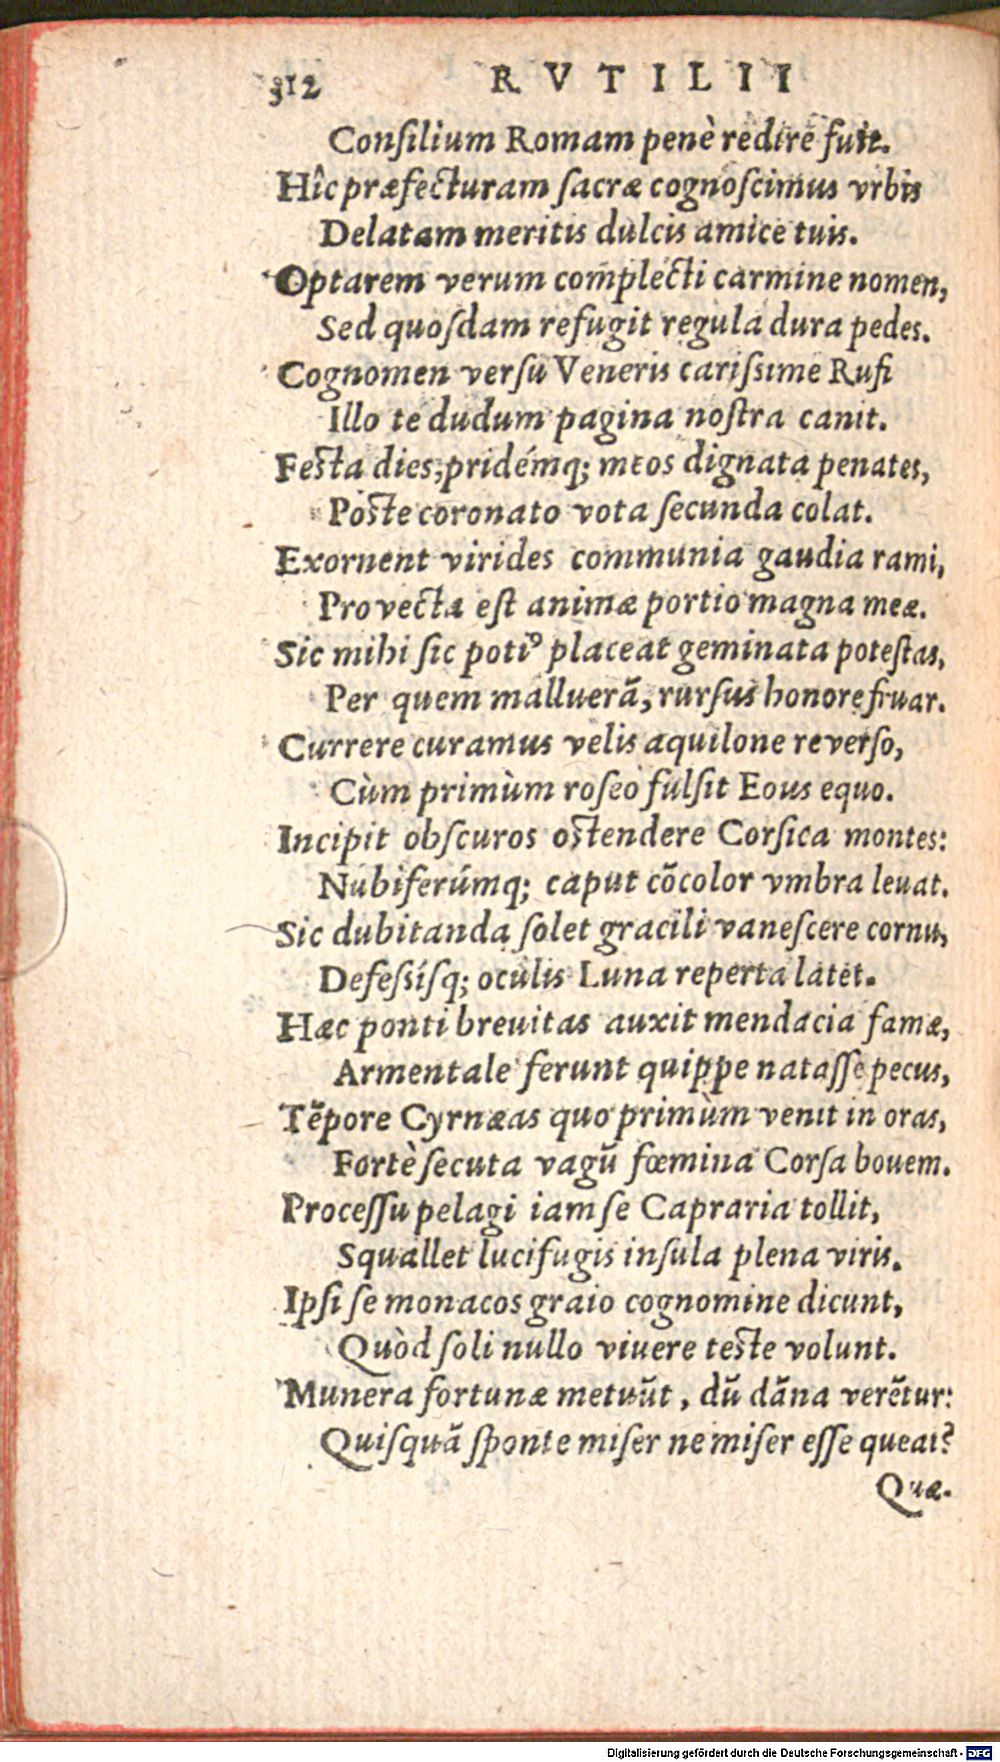 312 RVTILII
Consilium Romam penè redire fuit.
Hîc præfecturam sacræ cognoscimus vrbis
Delatam meritis dulcis amice tuis.
Optarem verum complecti carmine nomen,
Sed quosdam refugit regula dura pedes.
Cognomen versu Veneris carissime Rufi
Illo te dudum pagina nostra canit.
Festa dies, pridémq; meos dignata penates,
Poste coronato vota secunda colat.
Exornent virides communia gaudia rami,
Provecta est animæ portio magna meæ.
Sic mihi sic potiꝰ placeat geminata potestas,
Per quem malluerã, rursus honore fruar.
Currere curamus velis aquilone reverso,
Cùm primùm roseo fulsit Eous equo.
Incipit obscuros ostendere Corsica montes:
Nubiferúmq; caput cõcolor vmbra leuat.
Sic dubitanda solet gracili vanescere cornu,
Defessísq; oculis Luna reperta latet.
Hæc ponti breuitas auxit mendacia famæ,
Armentale ferunt quippe natasse pecus,
Tẽpore Cyrnæas quo primùm venit in oras,
Fortè secuta vagũ fœmina Corsa bouem.
Processu pelagi iam se Capraria tollit,
Squallet lucifugis insula plena viris.
Ipsi se monacos graio cognomine dicunt,
Quòd soli nullo viuere teste volunt.
Munera fortunæ metuũt, dũ dãna verẽtur:
Quisquã sponte miser ne miser esse queat?
Quæ.
Digitalisierung gefördert durch die Deutsche Forschungsgemeinschaft - DFG